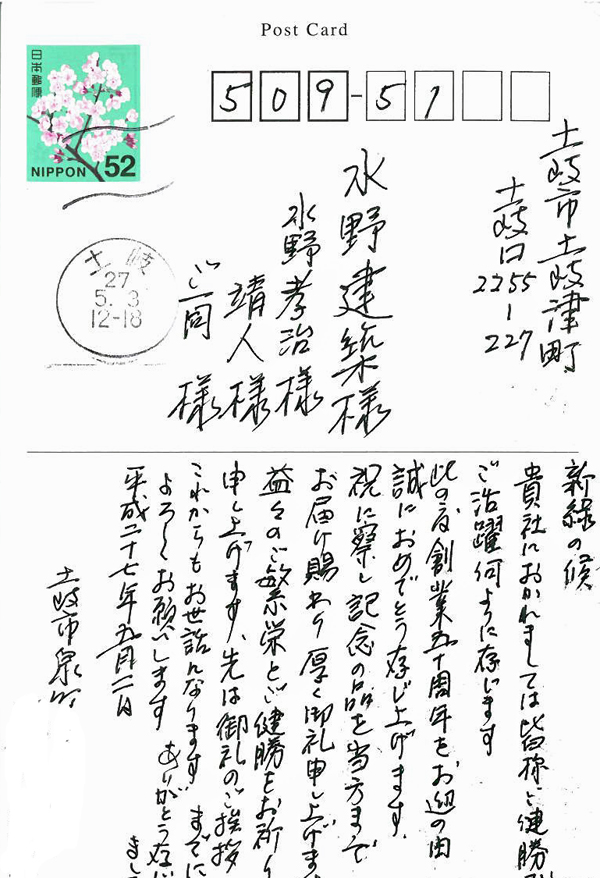 Post Card
日本郵便
NIPPON 52
土岐
27
5. 3
12-18
509-51
土岐市土岐津町
土岐口
2255-227
水野建築様
水野孝治様
靖人様
ご一同様
新緑の候
貴社におかれましては皆様ご健勝
ご活躍何ように存じます
此の度創業五十周年をお迎の由
誠におめでとう存じ上げます、
祝に際し記念の品を当方まで
お届け賜わり厚く御礼申し上げま
益々のご繁栄とご健勝をお祈り
申し上げます、先は御礼のご挨拶
これからもお世話になります までに
よろしくお願いします ありがとう存じ
まし
平成二十七年五月二日
土岐市泉